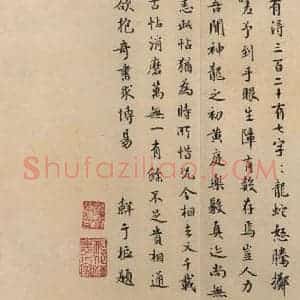 有得三百二十有七字〻龍蛇怒騰擲
嗟予到手眼生障有數存焉豈人力
吾聞神龍之初黃庭樂毅真迹尚無
恙此帖猶為時所惜況今相去又千載
古帖消磨萬無一有餘不足貴相通
欲抱奇書求博易 鮮于樞題
Shufaziliao.com